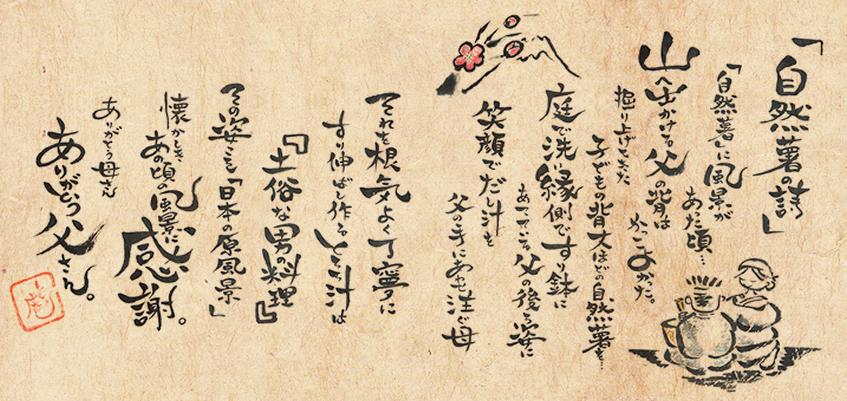 「自然薯の詩」
「自然薯」に風景が
あった頃…
山へ出かける父の背は
かっこよかった。
掘り上げてきた
子どもの背丈ほどの自然薯を…
庭で洗い縁側ですり鉢に
あてている父の後ろ姿に
笑顔でだし汁を
父の手にあわせ注ぐ母
それを根気よく丁寧に
すり伸ばし作るとろろ汁は
『土俗な男の料理』
その姿こそ「日本の原風景」
懐かしきあの頃の風景に
感謝。
ありがとう母さん
ありがとう父さん。